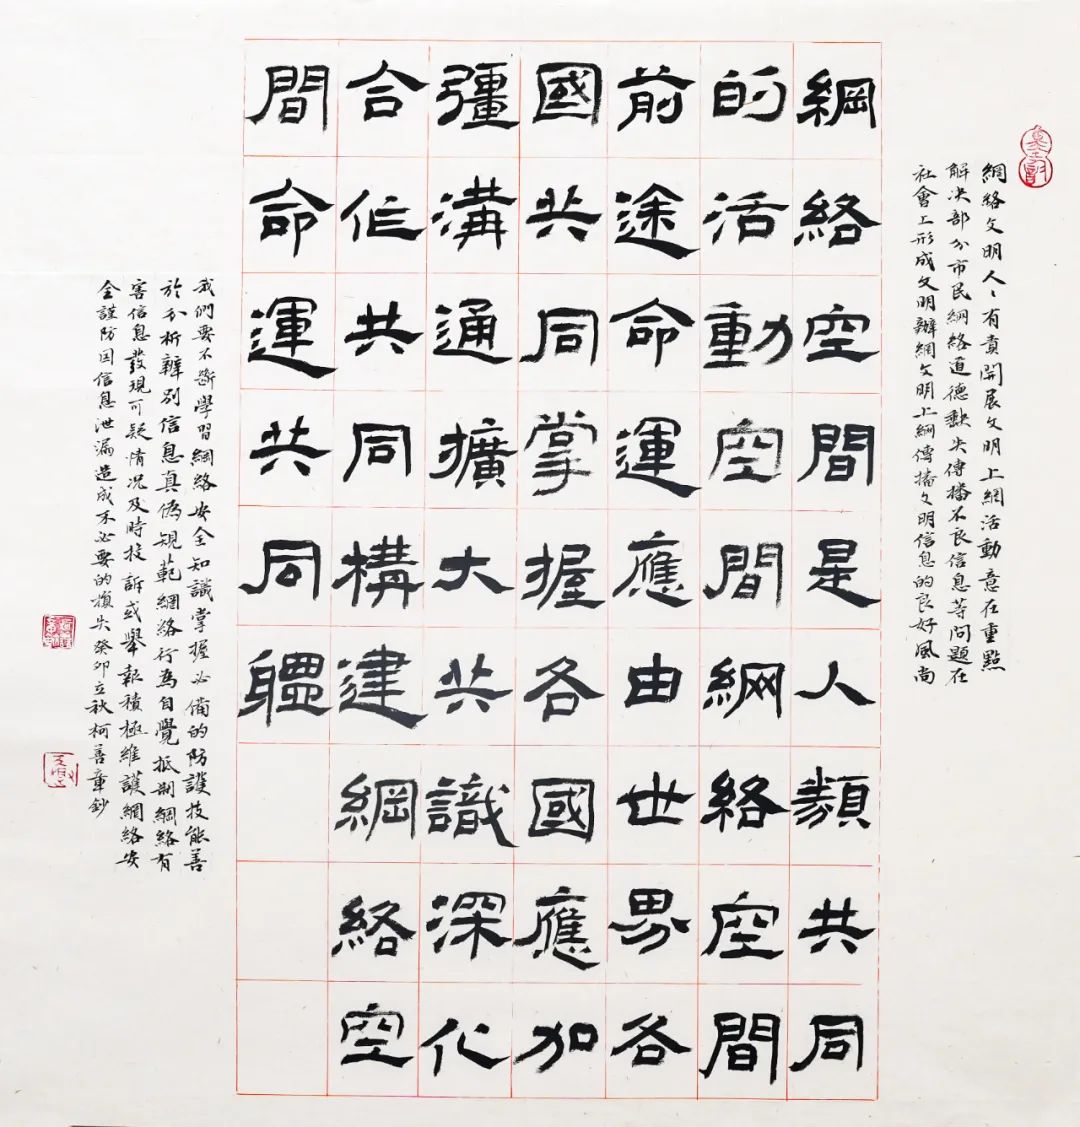 網絡文明人〻有責開展文明上網活動意在重點
解决部分市民網絡道德缺失傳播不良信息等問題在
社會上形成文明辦網文明上網傳播文明信息的良好風尚
網絡空間是人類共同
的活動空間網絡空間
前途命運應由世界各
國共同掌握各國應加
彊溝通擴大共識深化
合作共同構建網絡空
間命運共同軆
我們要不斷學習網絡安全知識掌握必備的防護技能善
於分析辨別信息真偽規範網絡行為自覺抵制網絡有
害信息發現可疑情况及時投訴或舉報積極維護網絡安
全謹防因信息泄漏造成不必要的損失癸卯立秋柯善章鈔